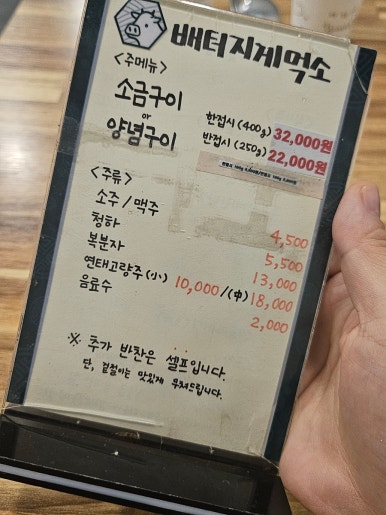 배터지게먹소
<주메뉴>
소금구이
or
양념구이
한접시 (400g) 32,000원
반접시 (250g) 22,000원
<주류>
소주 / 맥주 4,500
청하 5,500
복분자 13,000
연태고량주 (小) 10,000 / (中) 18,000
음료수 2,000
※ 추가 반찬은 셀프입니다.
단, 겉절이는 맛있게 무쳐드립니다.